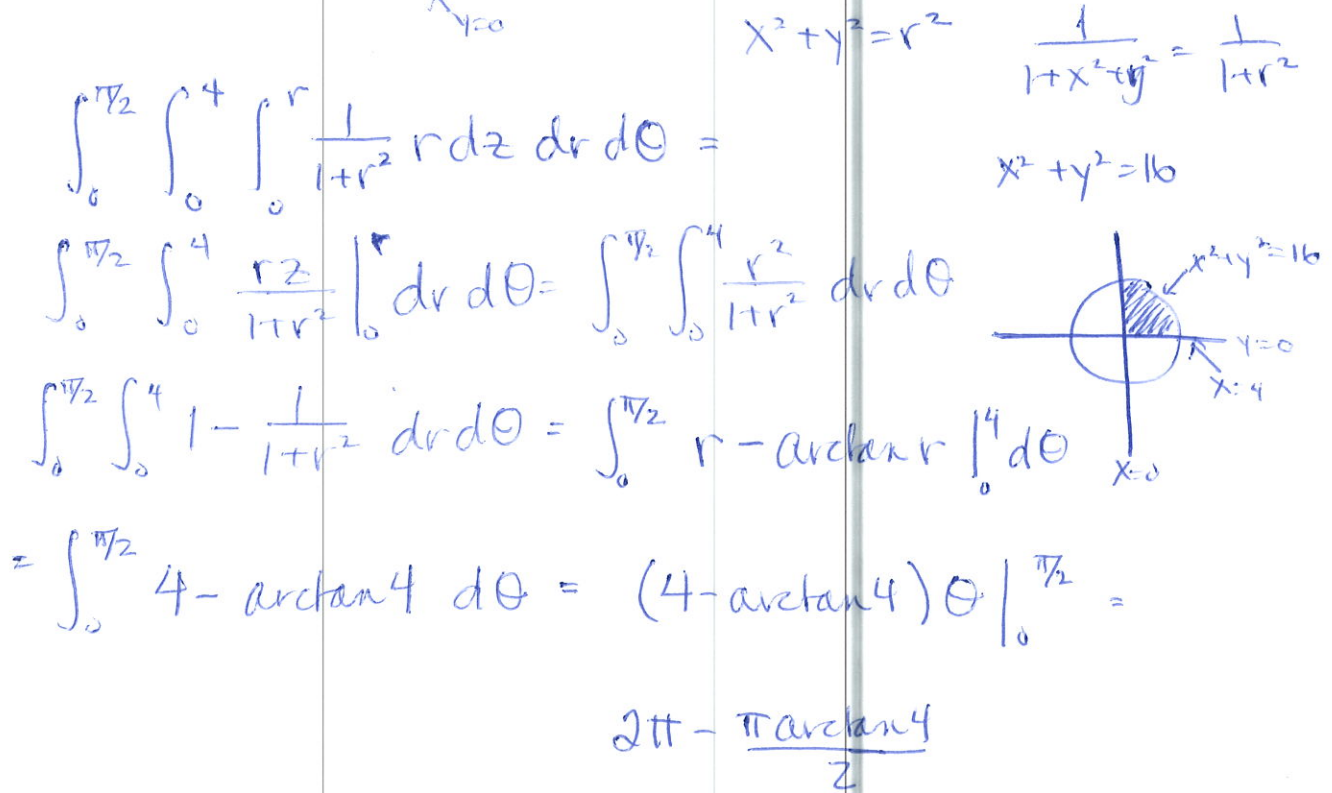 y=0
x² + y² = r²
1/(1+x²+y²) = 1/(1+r²)
∫₀^(π/2) ∫₀^4 ∫₀^r 1/(1+r²) r dz dr dθ =
x² + y² = 16
∫₀^(π/2) ∫₀^4 rz/(1+r²) |₀^r dr dθ = ∫₀^(π/2) ∫₀^4 r²/(1+r²) dr dθ
x²+y²=16
y=0
x=4
x=0
∫₀^(π/2) ∫₀^4 1 - 1/(1+r²) dr dθ = ∫₀^(π/2) r - arctan r |₀^4 dθ
= ∫₀^(π/2) 4 - arctan 4 dθ = (4 - arctan 4) θ |₀^(π/2) =
2π - π arctan 4 / 2